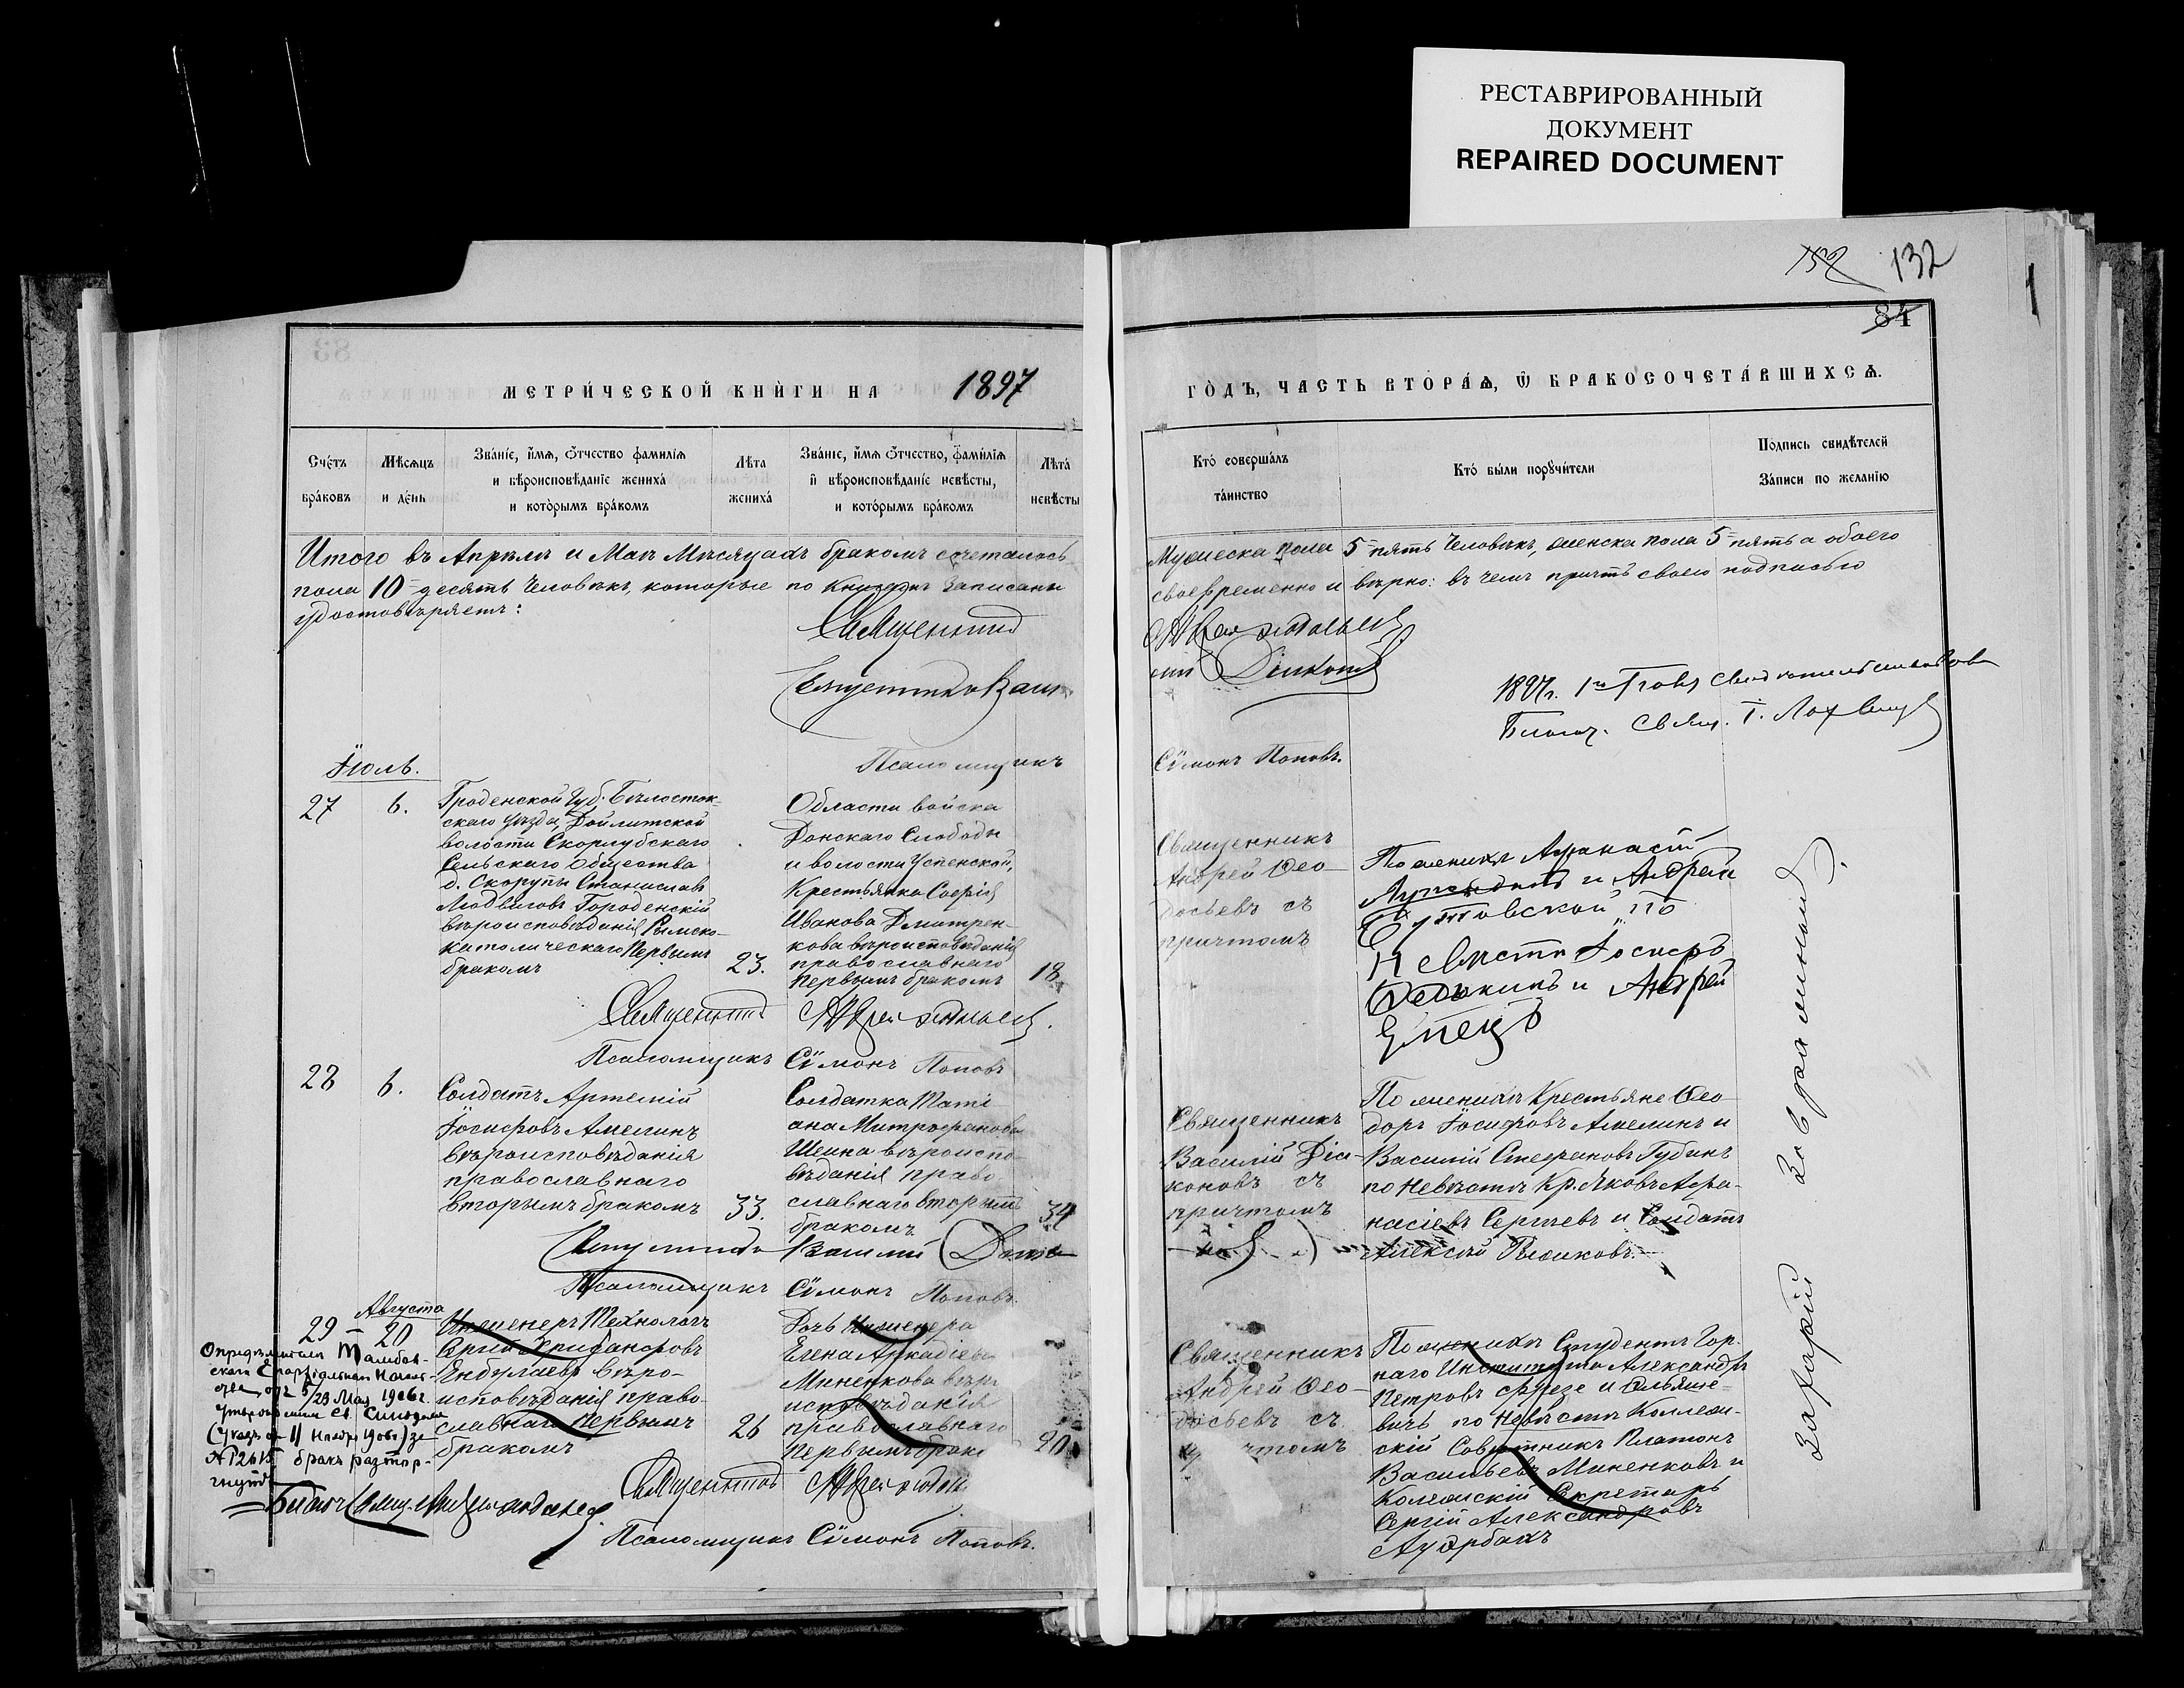 РЕСТАВРИРОВАННЫЙ
ДОКУМЕНТ
REPAIRED DOCUMENT
132
84
МЕТРИ́ЧЕСКОЙ КНИ́ГИ НА 1897
ГО́ДЪ, ЧАСТЬ ВТОРА́Ѧ, Ѿ БРАКОСОЧЕТА́ВШИХСѦ.
Сче́тъ
бра́ковъ
Мѣсѧцъ
и де́нь
Зва́нїе, и́мѧ, ѻ́тчество фамилїѧ
и вѣроисповѣданїе жениха̀
и кото́рымъ бра́комъ
Лѣта
жениха̀
Зва́нїе, и́мѧ ѻ́тчество, фами́лїѧ
и҆ вѣроисповѣданїе невѣсты,
и кото́рымъ бра́комъ
Лѣта̀
невѣсты
Кто̀ соверша́лъ
та́инство
Кто̀ бы́ли порꙋчи́тели
Подпись свидѣтелей
За́писи по желанїю
Итого въ Апрѣлѣ и Маѣ Мѣсяцахъ бракомъ сочеталось
пола 10 десять человѣкъ, которые по записаны
удостовѣряетъ:
Священникъ
Мужеска пола 5 пять человѣкъ, женска пола 5 пять а обоего
своевременно и вѣрно: въ чемъ причтъ своею подписью
1897г.
Благоч. Свящ. І.
Іюль.
Псаломщикъ
Сѵмонъ Поповъ.
27
6.
Гроденской Губ. Бѣлосток-
скаго уѣзда, Дойлитской
волости Скорубскаго
Сельскаго Общества
д. Скорупы Станиславъ
Людвиговъ Городенскій
вѣроисповѣданія Римско-
католическаго Первымъ
бракомъ
23.
Области войска
Донскаго Слободы
и волости Успенской,
Крестьянка Софія
Иванова Дмитрен-
кова вѣроисповѣданія
православнаго
первымъ бракомъ
18
Священникъ
Андрей Ѳео-
досьевъ съ
причтомъ
По женихѣ Афанасій
и Андрей
по
Невѣсте Іосифъ
и Андрей
Священникъ
Псаломщикъ Сѵмонъ Поповъ
28
6.
Солдатъ Артемій
Іосифовъ Амелинъ
вѣроисповѣданія
православнаго
вторымъ бракомъ
33.
Солдатка Таті-
ана Митрофанова
Шеина вѣроиспо-
вѣданія право-
славнаго вторымъ
бракомъ
34
Священникъ
Василій Діа-
коновъ съ
причтомъ
По женихѣ Крестьяне Ѳео-
доръ Іосифовъ Амелинъ и
Василій Стефановъ Губинъ
по Невѣстѣ Кр. Яковъ Афа-
насіевъ Сергѣевъ и Солдатъ
Алексѣй Рыжиковъ.
Василій
Псаломщикъ Сѵмонъ Поповъ.
Августа
29 — 20
Инженеръ Технологъ
Сергій Хрисанфовъ
Енбулаевъ вѣро-
исповѣданія право-
славнаго первымъ
бракомъ
26
Дочь Инженера
Елена Аркадіева
Миненкова вѣро
исповѣданія
православнаго
первымъ брако
20
Священникъ
Андрей Ѳео-
досьевъ съ
чтомъ
По женихѣ Студентъ Гор-
наго Института Александръ
Петровъ Фрезе и
вичъ по Невѣстѣ Коллеж-
скій Совѣтникъ Платонъ
Васильевъ Миненковъ и
Коллежскій Секретарь
Сергій Александровъ
Ауэрбахъ
Опредѣленіемъ Тамбов-
скаго Епархіальнаго Началь-
ства отъ 5/23 Мая 1906 г.
утвержденнымъ Св. Синодомъ
(Указъ отъ 11 Ноября 1906) за
№ 12615 бракъ растор-
гнутъ
Священникъ
Псаломщикъ Сѵмонъ Поповъ.